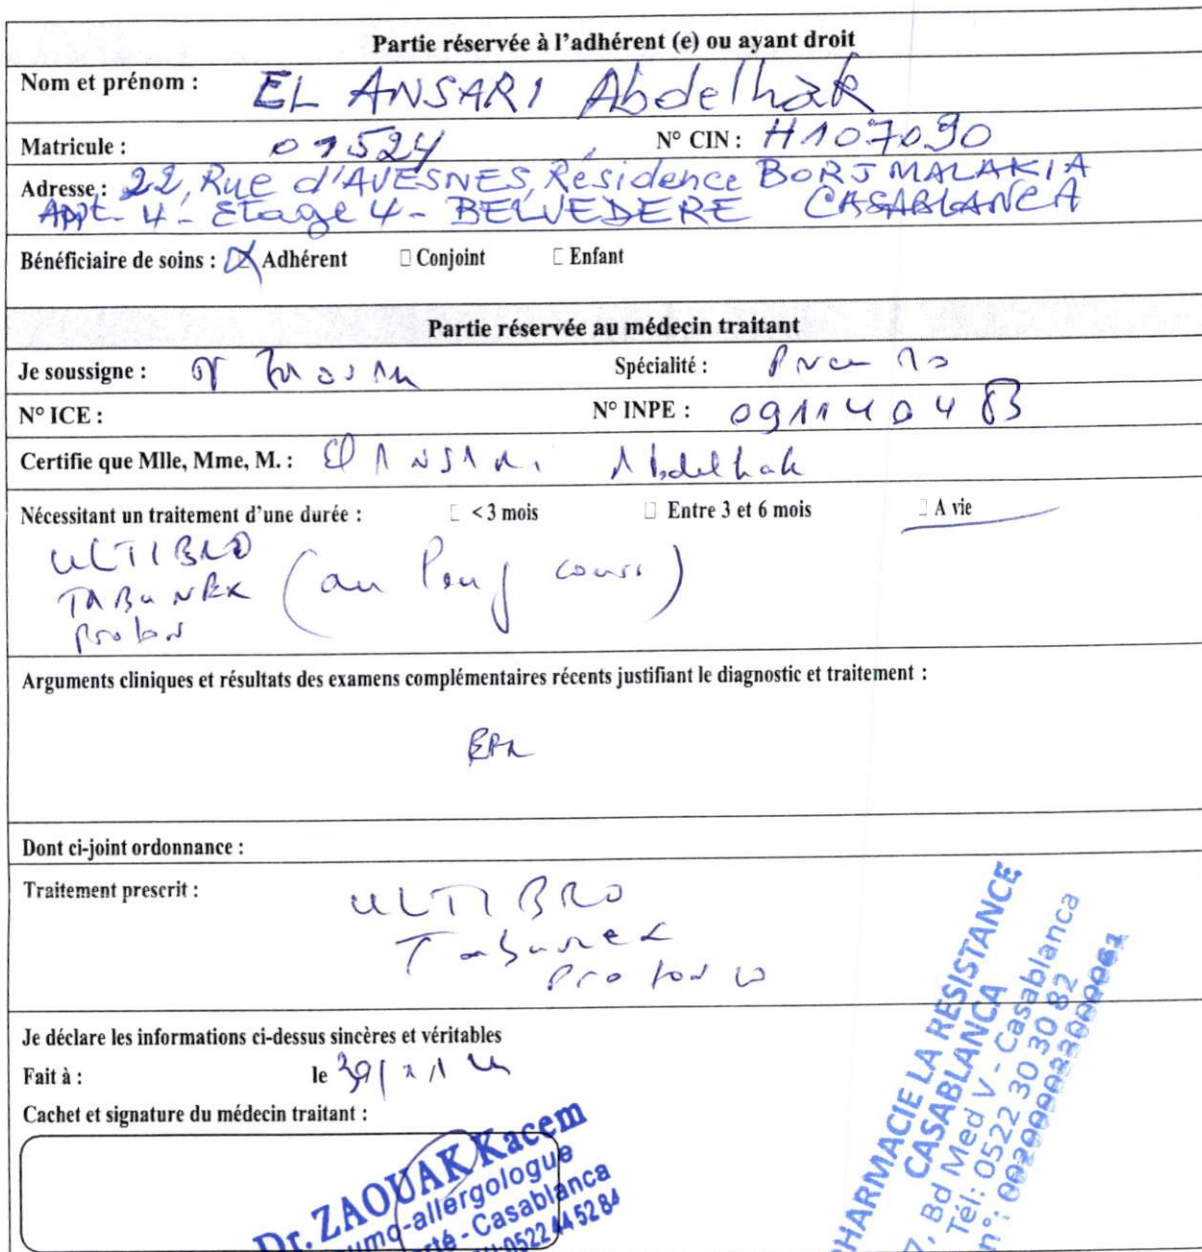 Partie réservée à l'adhérent (e) ou ayant droit
Nom et prénom : EL ANSARI Abdelhak
Matricule : 01524 N° CIN : H107090
Adresse : 22, Rue d'AVESNES, Résidence BORJ MALAKIA
APPt. 4 - Etage 4 - BELVEDERE CASABLANCA
Bénéficiaire de soins : Adhérent Conjoint Enfant
Partie réservée au médecin traitant
Je soussigne : Spécialité :
N° ICE : N° INPE : 091140483
Certifie que Mlle, Mme, M. : El ANSARI Abdelhak
Nécessitant un traitement d'une durée : < 3 mois Entre 3 et 6 mois A vie
ULTIBRO
TABUNEX (au long cours)
Proton
Arguments cliniques et résultats des examens complémentaires récents justifiant le diagnostic et traitement :
Dont ci-joint ordonnance :
Traitement prescrit : ULTIBRO
Tabunex
Proton
Je déclare les informations ci-dessus sincères et véritables
Fait à : le
Cachet et signature du médecin traitant :
Dr. ZAOUAK Kacem
umo-allergologue
rté - Casablanca
0522 44 52 84
PHARMACIE LA RESISTANCE
CASABLANCA
7, Bd Med V - Casablanca
Tél: 0522 30 30 82